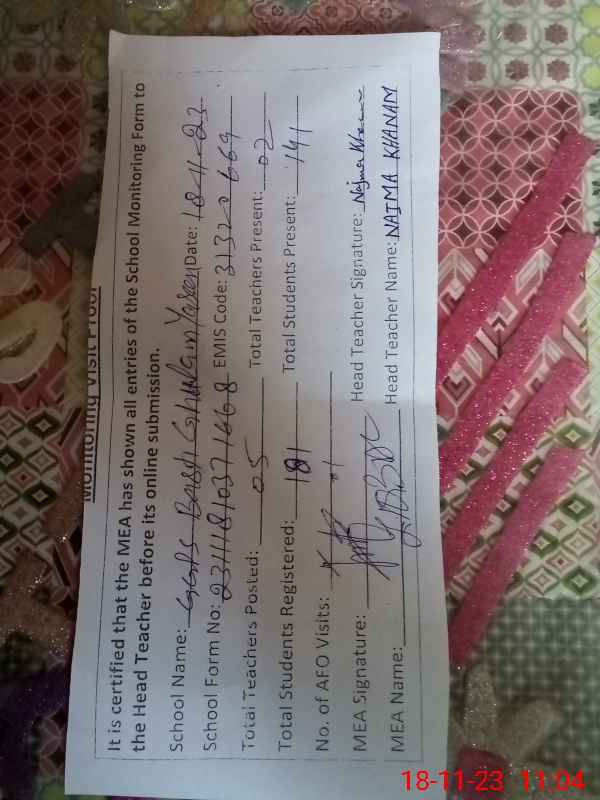 Monitoring Visit Proof
It is certified that the MEA has shown all entries of the School Monitoring Form to
the Head Teacher before its online submission.
School Name: GGPS Basti Ghulam Yaseen Date: 18-11-23
School Form No: EMIS Code: 31320669
Total Teachers Posted: 05 Total Teachers Present: 02
Total Students Registered: 181 Total Students Present: 141
No. of AFO Visits:
MEA Signature: Head Teacher Signature: Najma Khanam
MEA Name: Head Teacher Name: NAJMA KHANAM
18-11-23 11:04